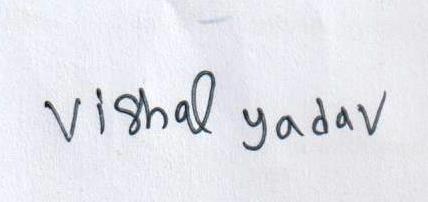 Vishal yadav